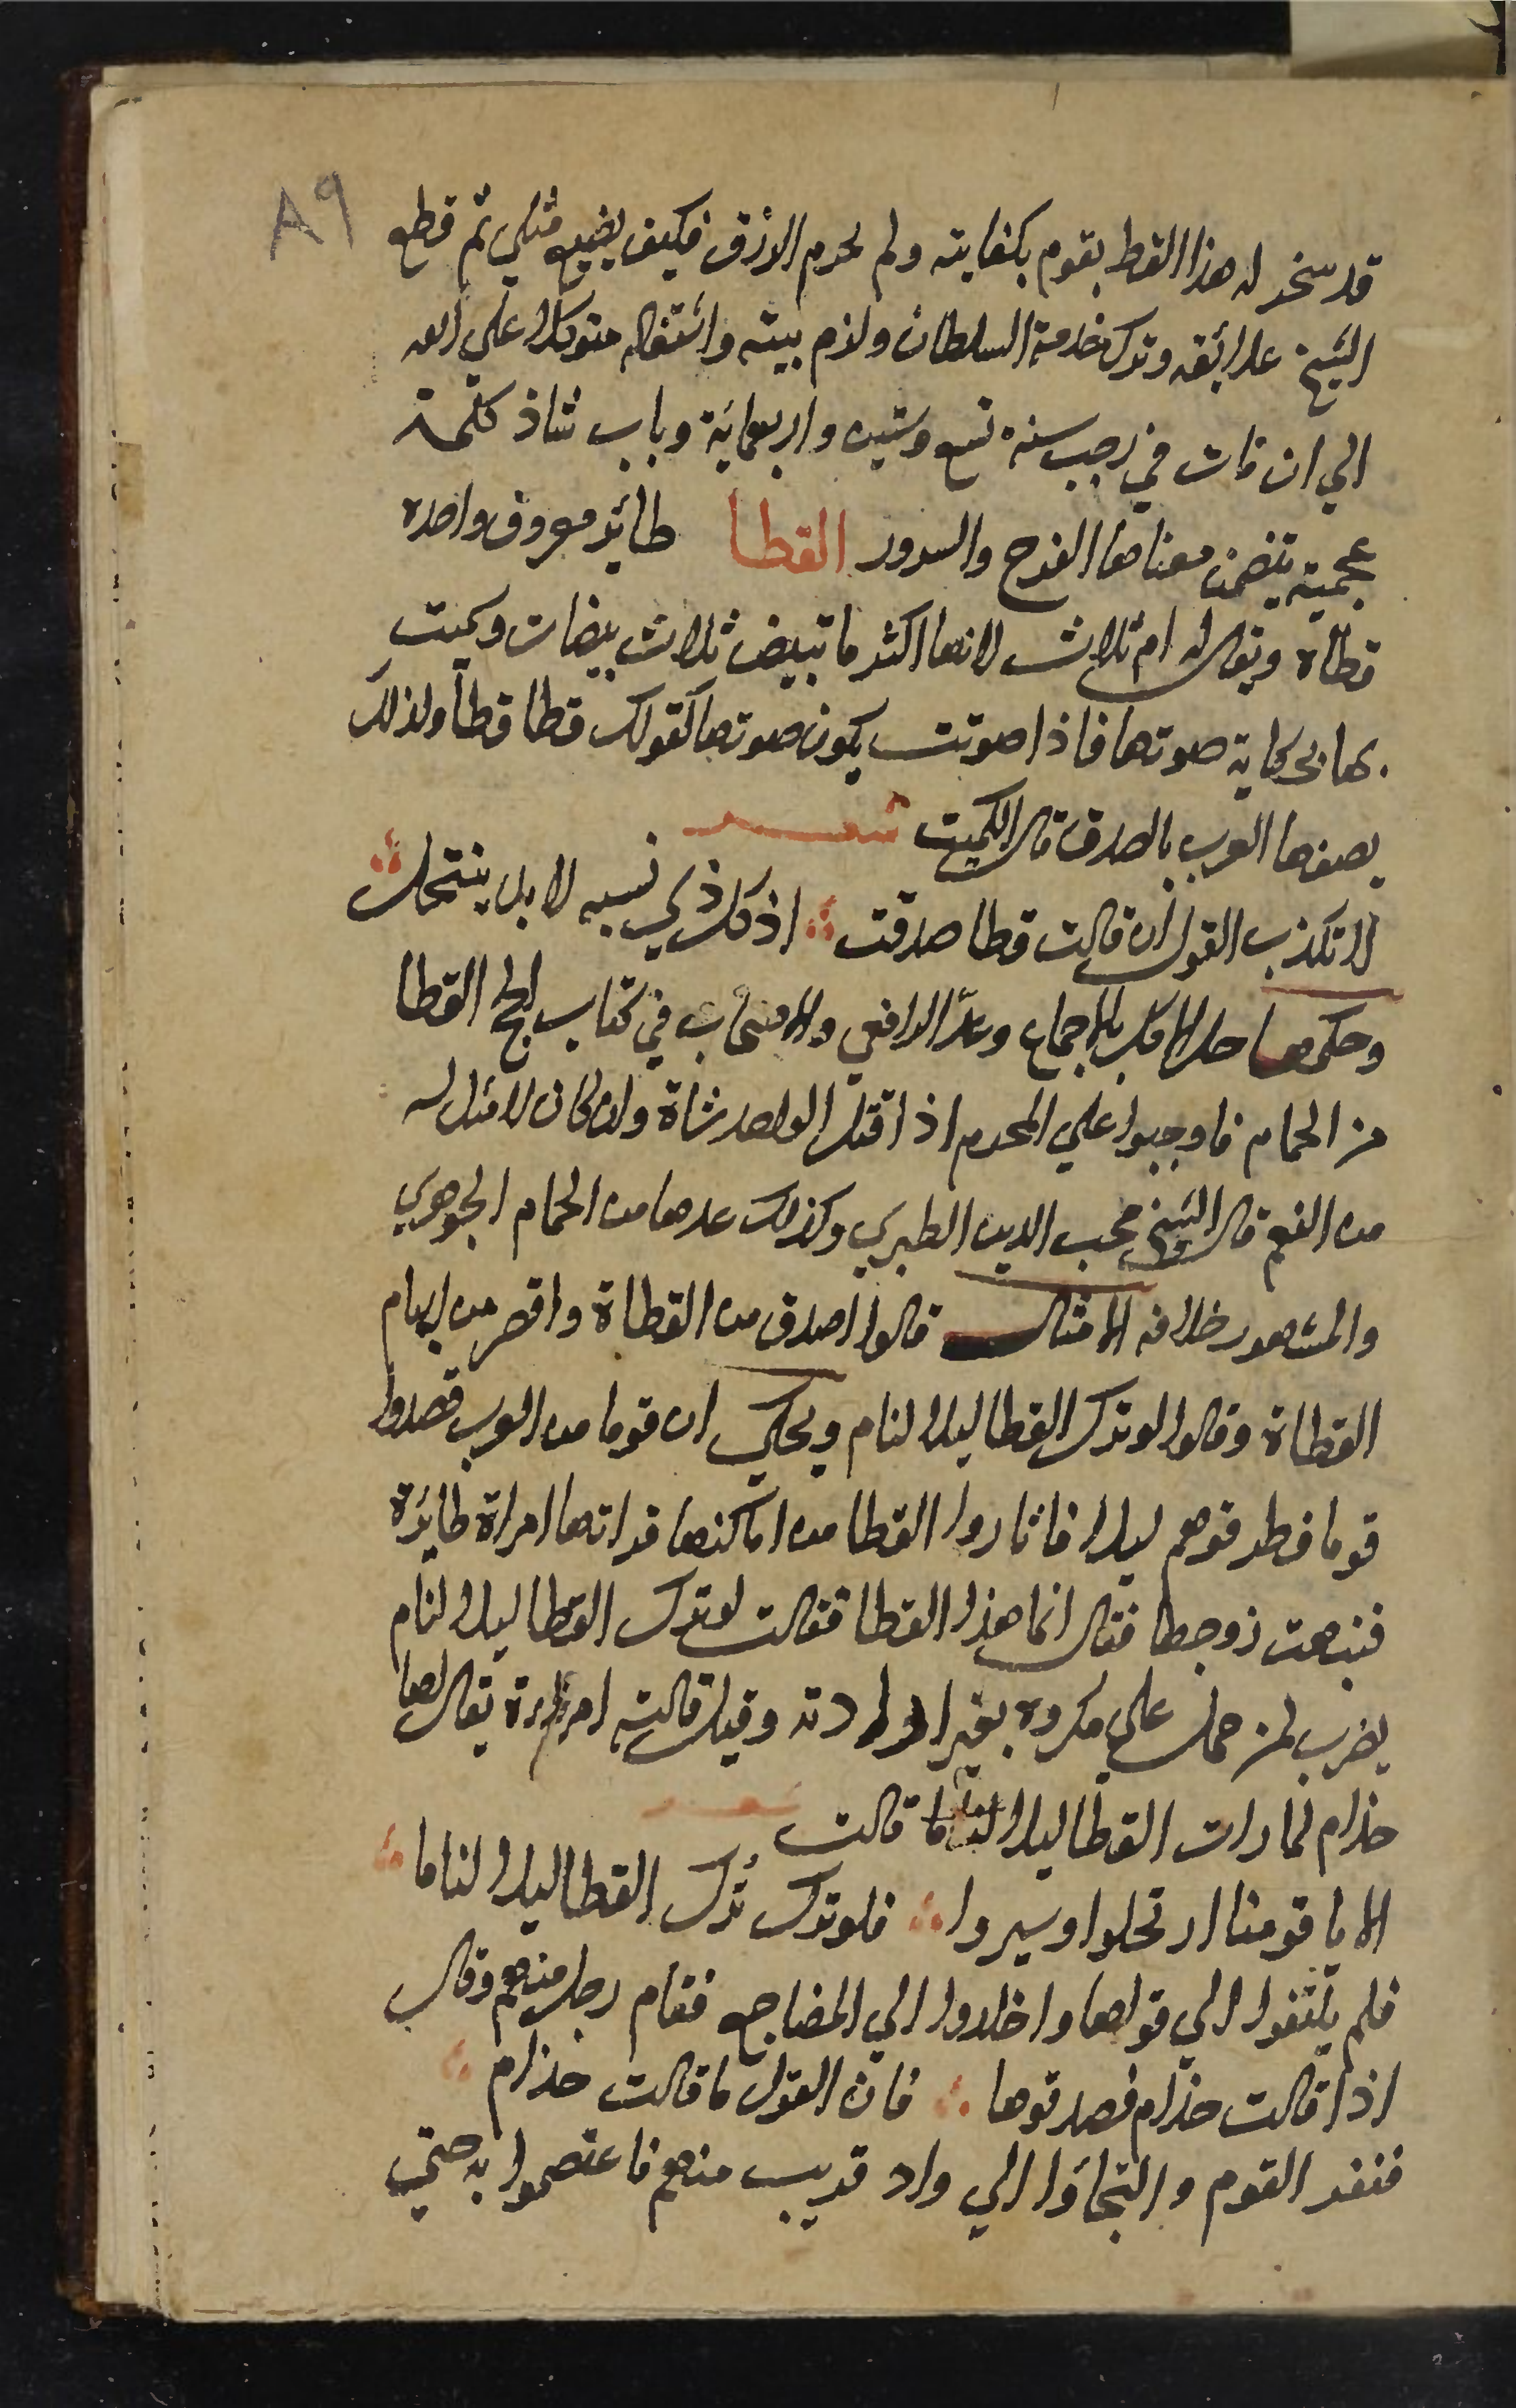 ٨٩
قد سخر له هذا القط يقوم بكفايته ولم يحرم الرزق فكيف يضيع مثلي ثم قطع
الشيخ علائقه وترك خدمة السلطان ولزم بيته واشتغاله متوكلا علي الله
الي ان مات في رجب سنة تسع وستين واربعمائة وباب شاذ كلمة
عجمية يتضمن معناها الفرح والسرور القطا طائر معروف واحده
قطاة ويقال له ام ثلاث لانها اكثر ما تبيض ثلاث بيضات وسميت
بها بحكاية صوتها فاذا صوتت يكون صوتها كقولك قطا قطا ولذلك
يصفها العرب بالصدق قال الكميت شعر
لا تكذب القول ان قالت قطا صدقت اذ كل ذي نسبه لا بل ينتحل
وحكمها حل الاكل بالاجماع وعد الرافعي والاصحاب في كتاب الحج القطا
من الحمام فاوجبوا علي المحرم اذا قتل الواحد شاة وان كان لا مثل له
من النعم قال الشيخ محب الدين الطبري وكذلك عدها من الحمام الجوهري
والمشهور خلافه الامثال قالوا اصدق من القطاة واقصر من ابهام
القطاة وقالوا لو ترك القطا ليلا لنام ويحكي ان قوما من العرب قصدوا
قوما فطرقوهم ليلا فاثاروا القطا من اماكنها فراتها امراة طائرة
فنبهت زوجها فقال انما هذا القطا فقالت لو ترك القطا ليلا لنام
يضرب لمن حمل علي مكروه بغير ارادته وقيل قالته امراة يقال لها
حذام لما رات القطا ليلا لناما قالت شعر
الا يا قومنا ارتحلوا وسيروا فلو ترك تُرك القطا ليلا لناما
فلم يلتفوا الي قولها واخلدوا الي المضاجع فقام رجل منهم وقال
اذا قالت حذام فصدقوها فان القول ما قالت حذام
فنفر القوم والتجاؤا الي واد قريب منهم فاعتصموا به حتي